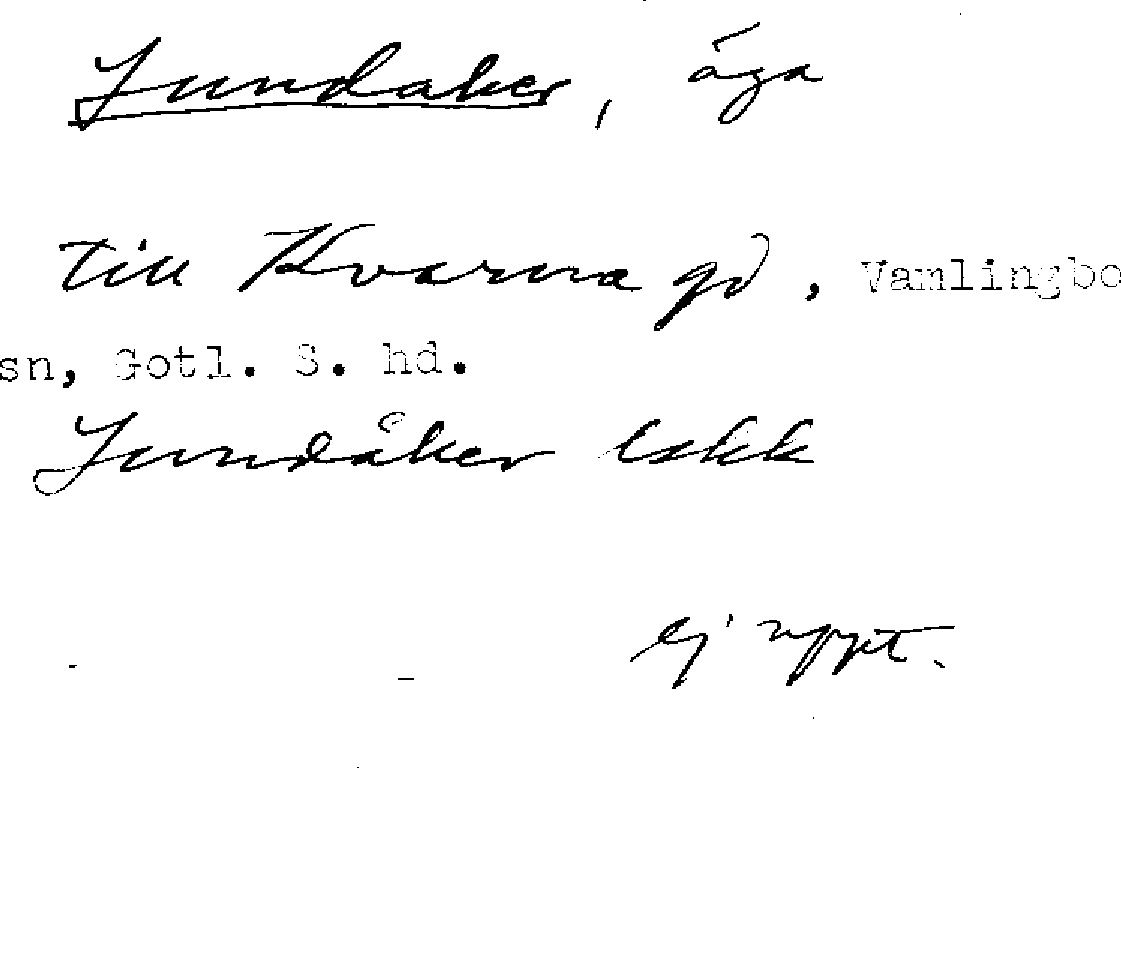 Sundaker, äga
till Kvarna gd, Vamlingbo
sn, Gotl. S. hd.
Sundåker lskk
ej uppt.